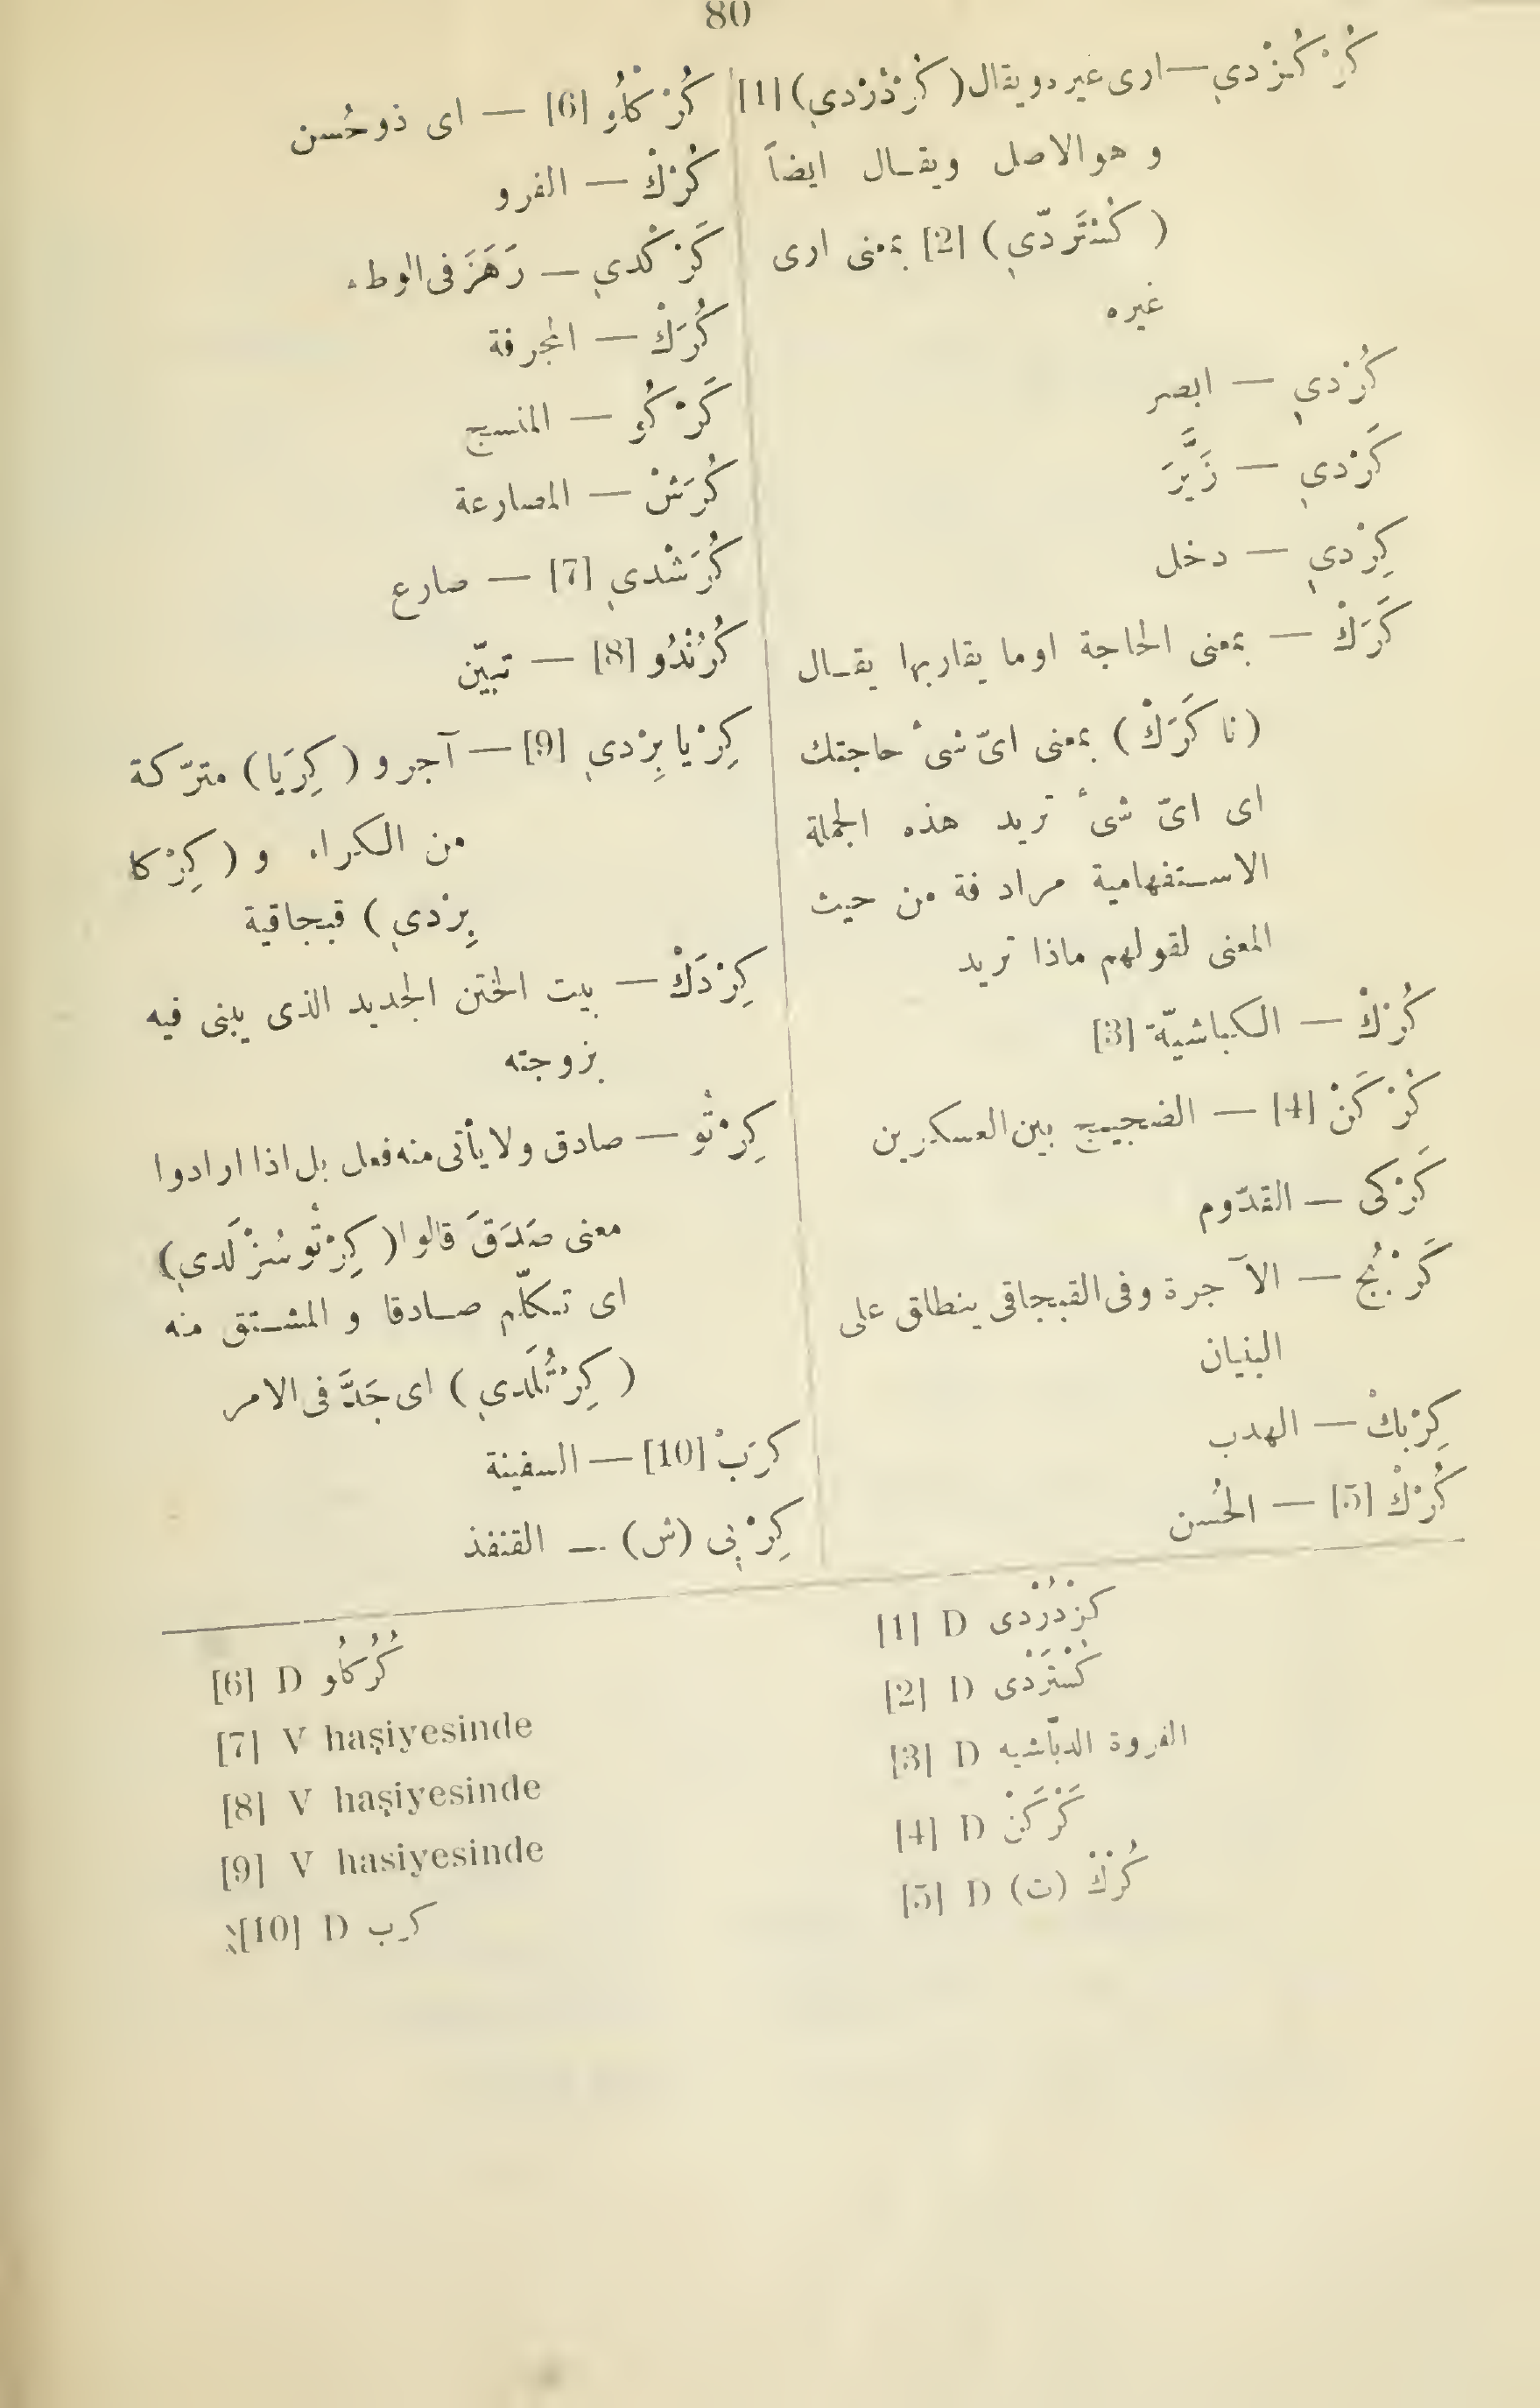 80
كُرْ كُزْدىِ — ارى غيره ويقال (كُزْدُرْدىِ) [1]
و هو الاصل ويقـال ايضاً
(كُسْتَردّىِ) [2] بمعنى ارى
غيره
كُرْدىِ — ابصر
كَرْدىِ — زَيَّرَ
كِرْدىِ — دخل
كَرَكْ — بمعنى الحاجة اوما يقاربها يقـال
(نا كَرَكْ) بمعنى اىّ شىْ حاجتك
اى اىّ شىْ تريد هذه الجملة
الاستفهامية مرادفة من حيث
المعنى لقولهم ماذا تريد
كُرْكْ — الكباشيّة [3]
كُرْ كَنْ [4] — الضجيج بين العسكرين
كَرْكى — القدّوم
كَرْبُج — الآجرة وفى القبجاقى ينطاق على
البنيان
كِرْبكْ — الهدب
كُرْكْ [5] — الحُسن
كُرْ كاُو [6] — اى ذوحُسن
كُرْكْ — الفرو
كَرْ كْدىِ — رَهَزَ فى الوطء
كُرَكْ — المجرفة
كَرْ كُو — المنسج
كُرَشْ — المصارعة
كُرَشْدىِ [7] — صارع
كُرُنْدُو [8] — تبيّن
كِرْيا بِرْدىِ [9] — آجر و (كِرَيا) متركّة
من الكراء و (كِرْكا
بِرْدىِ) قبجاقية
كِرْدَكْ — بيت الختن الجديد الذى يبنى فيه
بزوجته
كِرْتُو — صادق ولا يأتى منه فعل بل اذا ارادوا
معنى صَدَقَ قالوا (كِرْتُو سُزْلَدىِ)
اى تكلّم صـادقا و المشـتق منه
(كِرْتُلَدىِ) اى جَدَّ فى الامر
كرَبْ [10] — السفينة
كِرْبىِ (ش) — القنفذ
[1] D كزْدُرْدى
[2] D كُسْتَرْدى
[3] D الفروة الدبّاشيه
[4] D كَرْكَنْ
[5] D (ت) كُرْكْ
[6] D كُرُكاُو
[7] V haşiyesinde
[8] V haşiyesinde
[9] V hasiyesinde
[10] D كرب